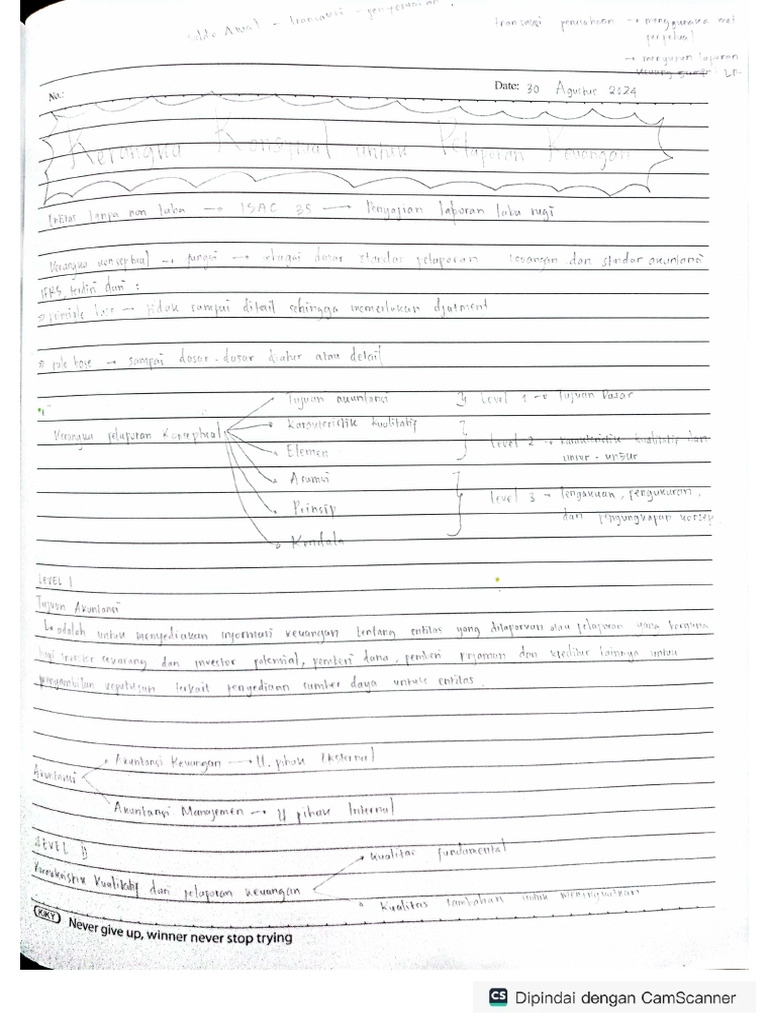 Saldo Awal - transaksi - penyesuaian.
transaksi perusahaan → menggunakan met
perpetual
→ menyusun laporan
No.:
Date: 30 Agustus 2024
Kerangka Konseptual untuk Pelaporan Keuangan
Entitas tanpa non laba → ISAC 35 → Penyajian laporan laba rugi
Kerangka konseptual → fungsi → sebagai dasar standar pelaporan keuangan dan standar akuntansi
IFRS, terdiri dari :
principle base → tidak sampai ditail sehingga memerlukan djutment
rule base → sampai dasar-dasar diatur atau detail
Tujuan akuntansi } Level 1 → Tujuan Dasar
Kerangka pelaporan Konseptual
Karakteristik kualitatif
Elemen
Level 2 → karakteristik kualitatif dan
unsur-unsur
Asumsi
Prinsip
Kendala
Level 3 → Pengakuan, pengukuran,
dan pengungkapan konsep
LEVEL 1
Tujuan Akuntansi
↳ adalah untuk menyediakan informasi keuangan tentang entitas yang dilaporkan atau pelaporan yang berguna
bagi investor sekarang dan investor potensial, pemberi dana, pemberi pinjaman dan kreditur lainnya untuk
pengambilan keputusan terkait penyediaan sumber daya untuk entitas.
Akuntansi
Akuntansi Keuangan → U. pihak Eksternal
Akuntansi Manajemen → U pihak Internal
LEVEL II
Karakteristik Kualitatif dari pelaporan keuangan
kualitas fundamental
kualitas tambahan untuk meningkatkan
KIKY Never give up, winner never stop trying
CS Dipindai dengan CamScanner